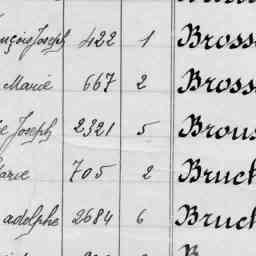 Joseph 422 1 Bross
Marie 667 2 Bross
Joseph 2321 5 Brous
Marie 705 2 Bruck
adolphe 2684 6 Bruck